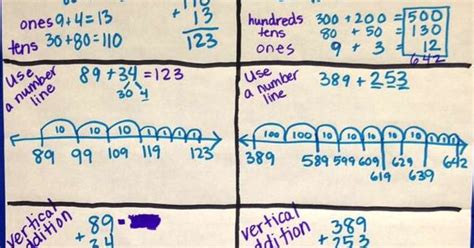 ones 9+4=13
+ 13
tens 30+80=110
123
hundreds 300 + 200 = 500
tens 80 + 50 = 130
ones 9 + 3 = 12
642
use a number line
89 + 34 = 123
30 4
10 10 10 1 1 1 1
89 99 109 119 123
use a number line
389 + 253
100 100 10 10 10 10 10 1 1 1
389 589 599 609 629 642
619 639
vertical addition
+ 89
34
vertical addition
389
+ 253